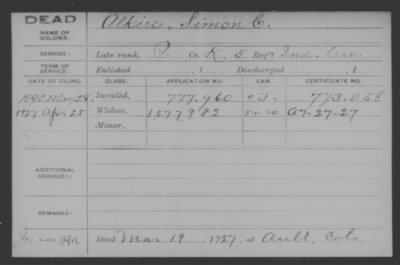 DEAD
NAME OF SOLDIER: Alkire, Simon C.
SERVICE: Late rank, P. Co. K, 5 Reg't Ind. Cav.
TERM OF SERVICE: Enlisted , 1 Discharged , 1
DATE OF FILING. CLASS. APPLICATION NO. LAW. CERTIFICATE NO.
1890 May 28, Invalid, 777.960 773.058
1927 Apr 25 Widow, 1577982 A7-27-27
Minor,
ADDITIONAL SERVICES:
REMARKS:
Died Mar 19, 1927, at Ault, Colo.